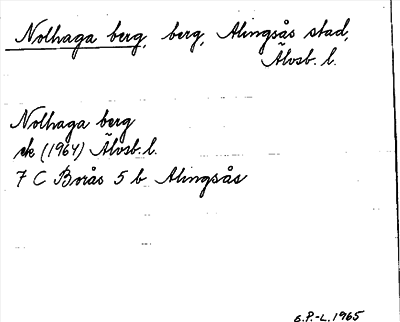 Nolhaga berg, berg, Alingsås stad,
Älvsb. l.
Nolhaga berg
ek (1964) Älvsb. l.
7 C Borås 5 b Alingsås
G.P.-L. 1965